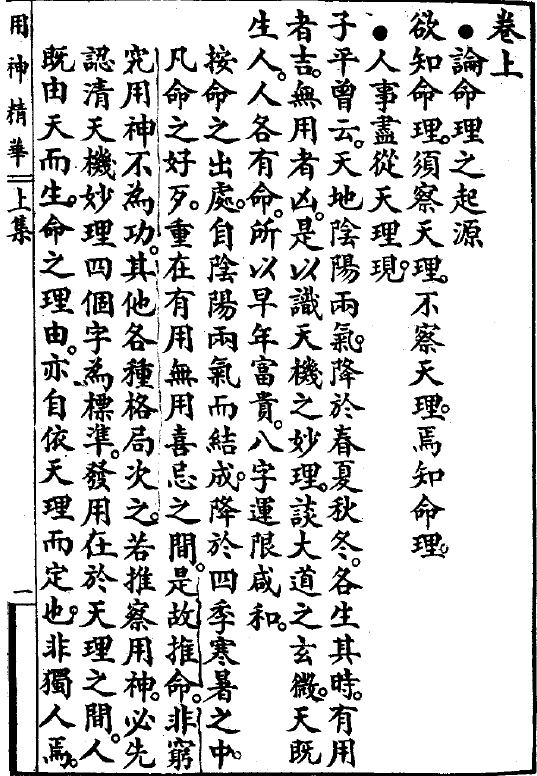 卷上
●論命理之起源
欲知命理。須察天理。不察天理。焉知命理。
●人事盡從天理現。
子平曾云。天地陰陽兩氣。降於春夏秋冬。各生其時。有用
者吉。無用者凶。是以識天機之妙理。談大道之玄微。天既
生人。人各有命。所以早年富貴。八字運限咸和。
按命之出處。自陰陽兩氣而結成。降於四季寒暑之中。
凡命之好歹。重在有用無用喜忌之間。是故推命。非窮
究用神不為功。其他各種格局次之。若推察用神。必先
認清天機妙理四個字為標準。發用在於天理之間。人
既由天而生。命之理由。亦自依天理而定也。非獨人焉。
用神精華 上集
一